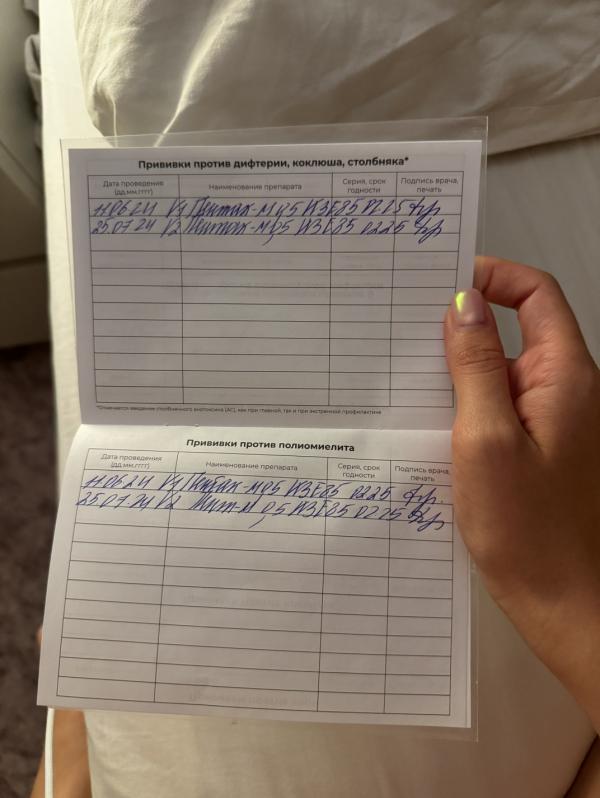 Прививки против дифтерии, коклюша, столбняка*
Дата проведения (дд.мм.гггг) Наименование препарата Серия, срок годности Подпись врача, печать
11.06.24 V1 0,5
25.07.24 V2 0,5 0225
*Отмечается введение столбнячного анатоксина (АС), как при плановой, так и при экстренной профилактике
Прививки против полиомиелита
Дата проведения (дд.мм.гггг) Наименование препарата Серия, срок годности Подпись врача, печать
11.06.24 V1 0,5 0225
25.07.24 V2 0,5 0225